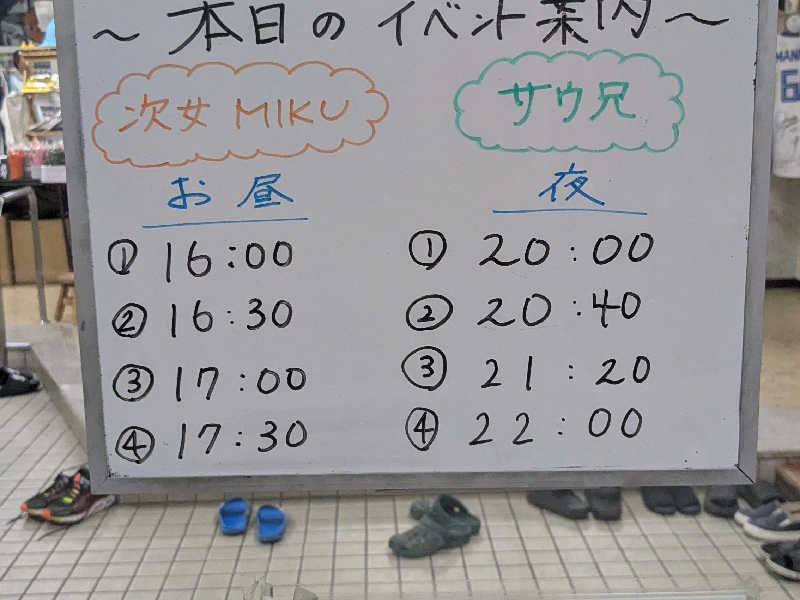 ～ 本日の イベント案内 ～
次女 MIKU
お昼
① 16:00
② 16:30
③ 17:00
④ 17:30
サウ兄
夜
① 20:00
② 20:40
③ 21:20
④ 22:00